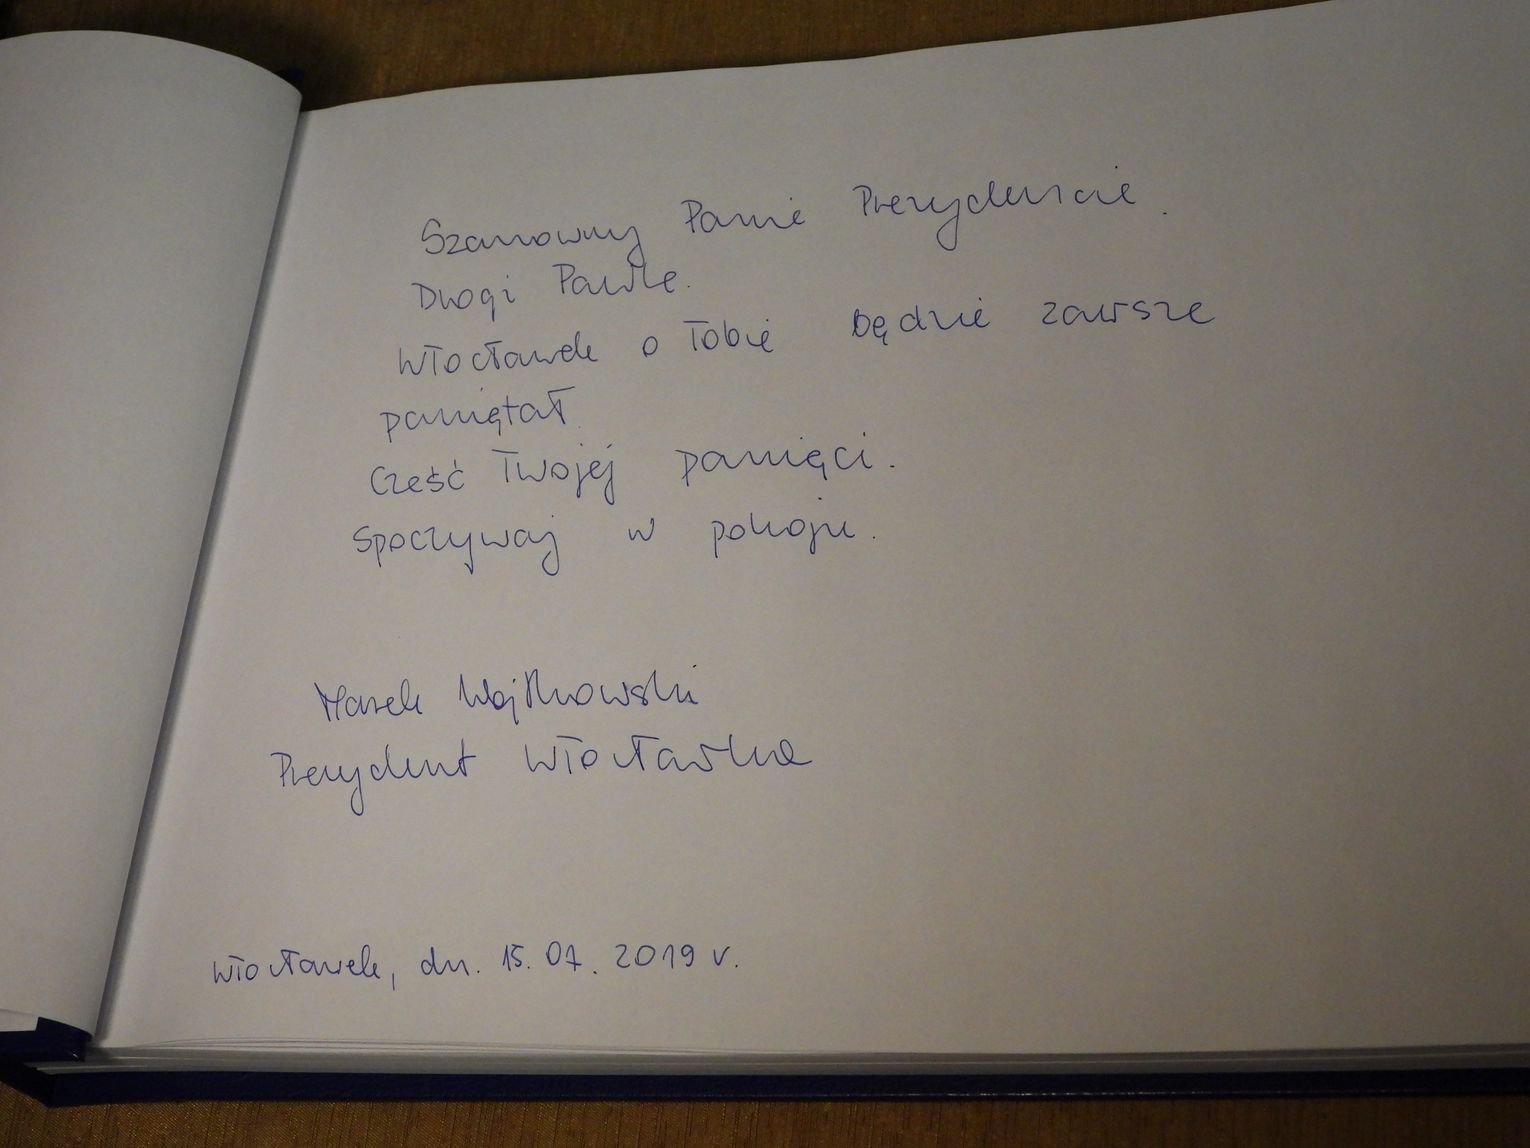 Szanowny Panie Prezydencie.
Drogi Pawle.
Włocławek o Tobie będzie zawsze
pamiętał.
Cześć Twojej pamięci.
Spoczywaj w pokoju.
Marek Wojtkowski
Prezydent Włocławka
Włocławek, dn. 15.01.2019 r.